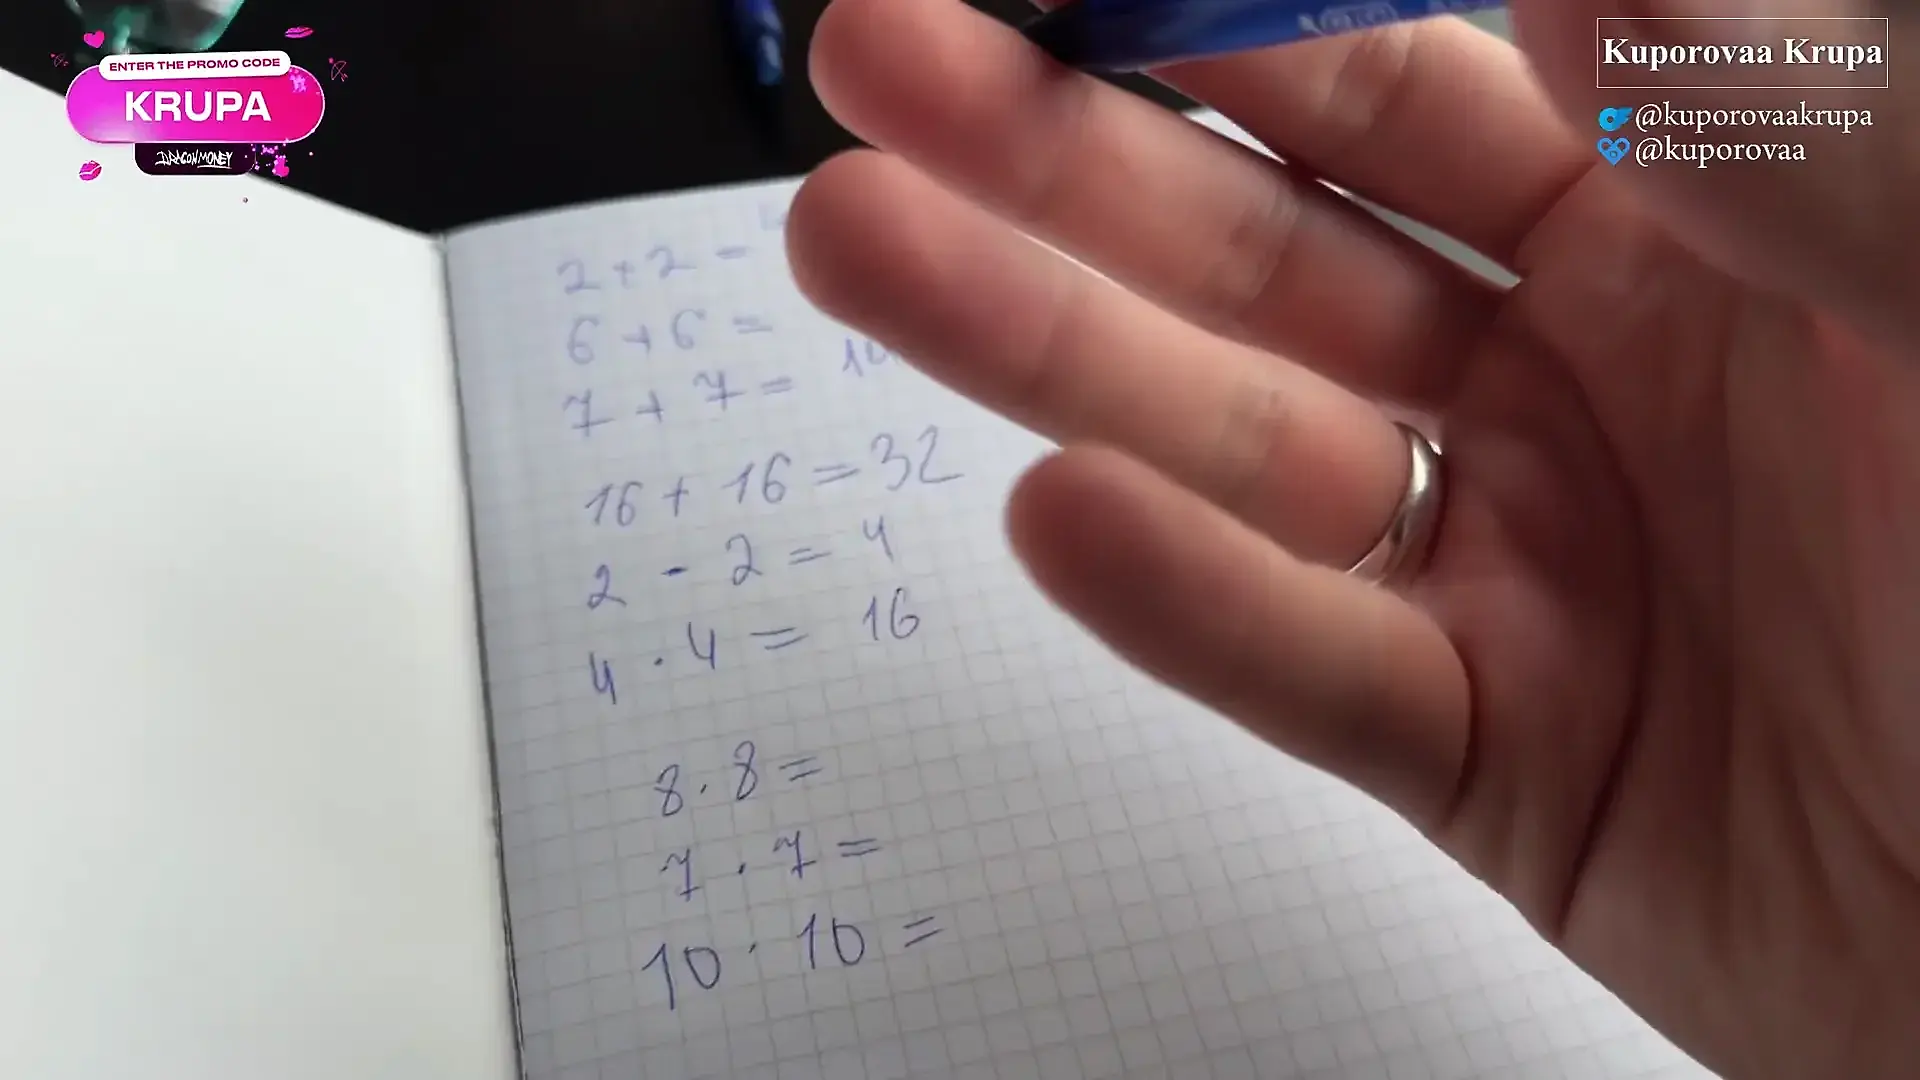 ENTER THE PROMO CODE
KRUPA
DRAGON MONEY
Kuporovaa Krupa
@kuporovaakrupa
@kuporovaa
2 + 2 =
6 + 6 =
7 + 7 =
16 + 16 = 32
2 - 2 = 4
4 · 4 = 16
8 · 8 =
7 · 7 =
10 · 10 =